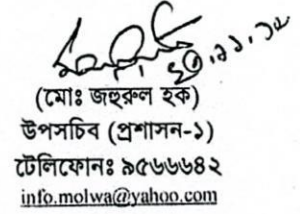 (মোঃ জহুরুল হক)
উপসচিব (প্রশাসন-১)
টেলিফোনঃ ৯৫৬৬৬৪২
info.molwa@yahoo.com